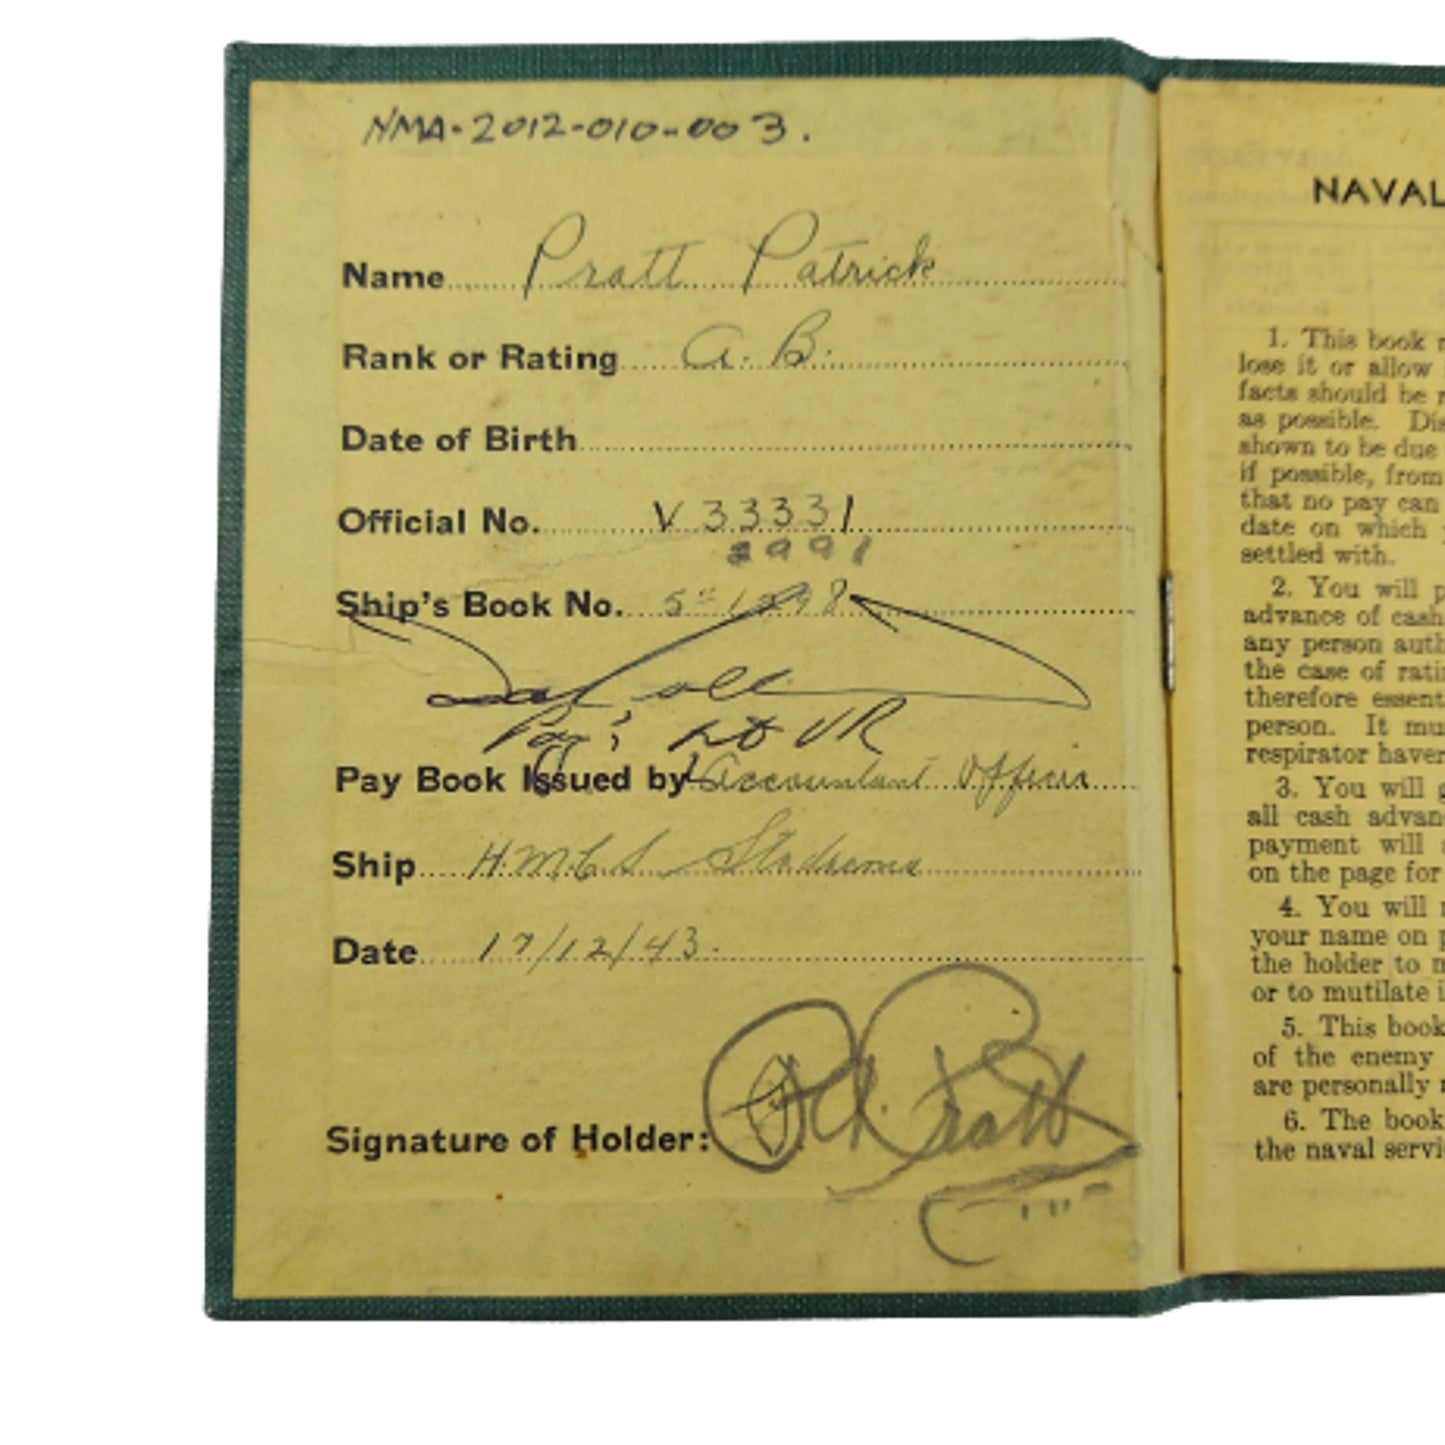 NMA-2012-010-003.
Name Pratt Patrick
Rank or Rating A. B.
Date of Birth
Official No. V 33331
2991
Ship's Book No. 5
VR
Pay Book Issued by Accountant Officer
Ship H.M.C.S Stadacona
Date 17/12/43.
Signature of Holder: Pratt
NAVAL
1. This book
lose it or allow
facts should be
as possible. Dis
shown to be due
if possible, from
that no pay can
date on which
settled with.
2. You will p
advance of cash
any person auth
the case of rati
therefore essent
person. It mu
respirator haver
3. You will g
all cash advan
payment will
on the page for
4. You will
your name on p
the holder to m
or to mutilate i
5. This book
of the enemy
are personally
6. The book
the naval servi